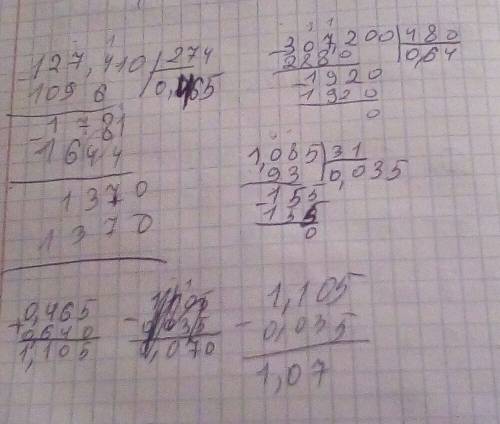 127,410 | 274
1096 | 0,465
1781
1644
1370
1370
307,200 | 480
2880 | 0,64
1920
1920
0
1,085 | 31
93 | 0,035
155
155
0
0,465
+ 0,640
1,105
1,105
- 0,035
1,07